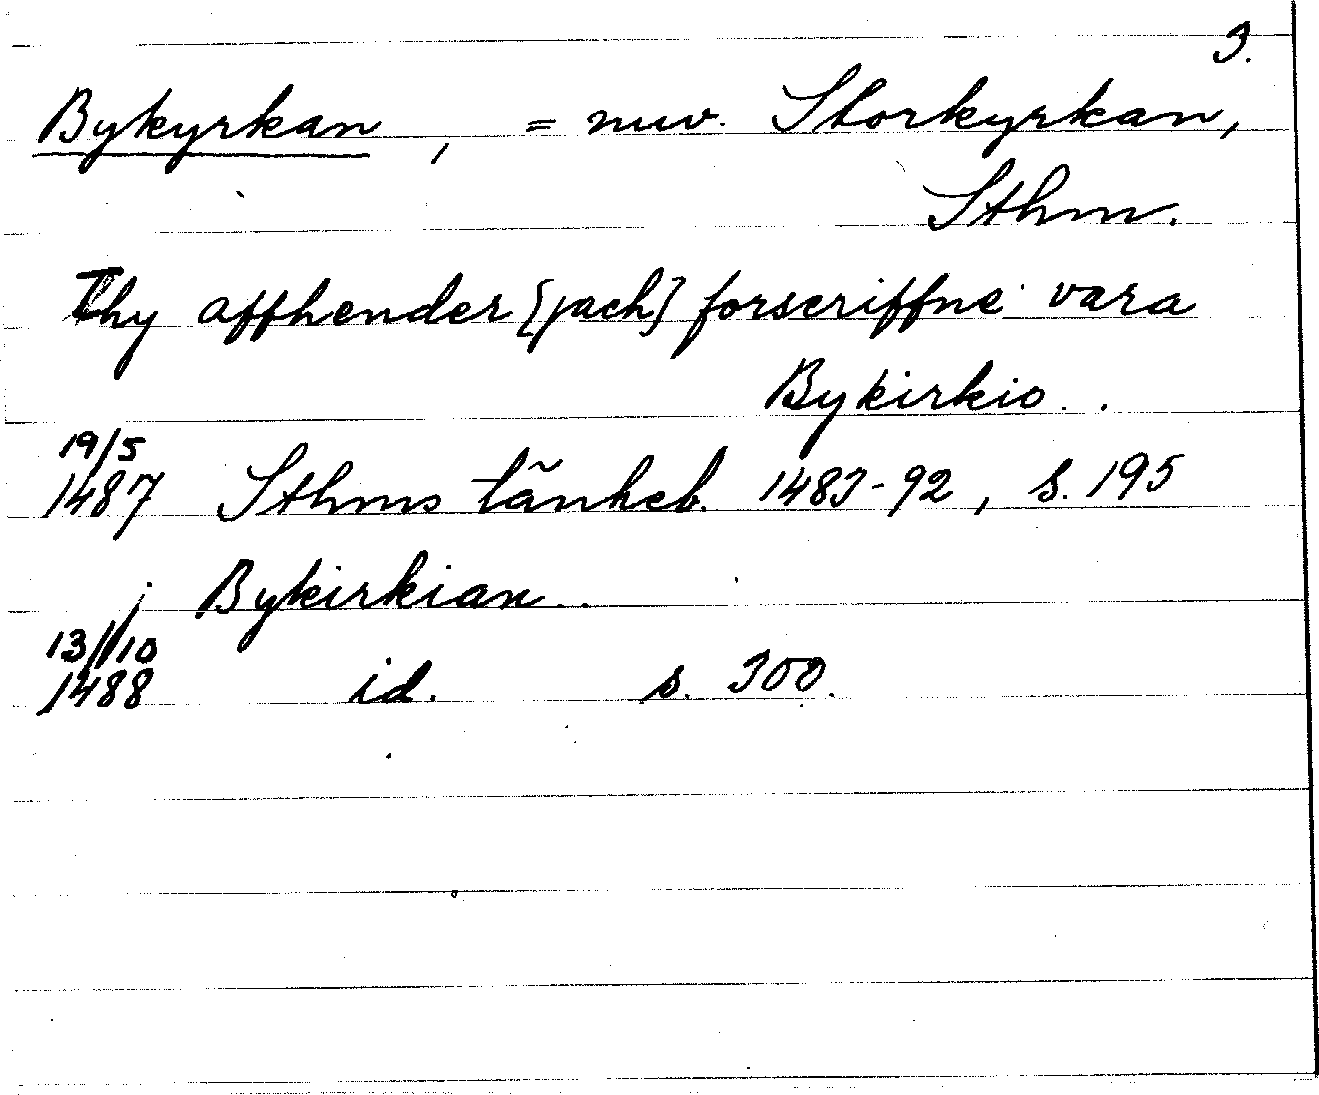 3.
Bykyrkan, = nuv. Storkyrkan,
Sthm.
Thy affhender [jach] forscriffne vara
Bykirkio..
19/5
1487 Sthms tänkeb. 1483-92, s. 195
j Bykirkian..
13/10
1488 id. s. 300.